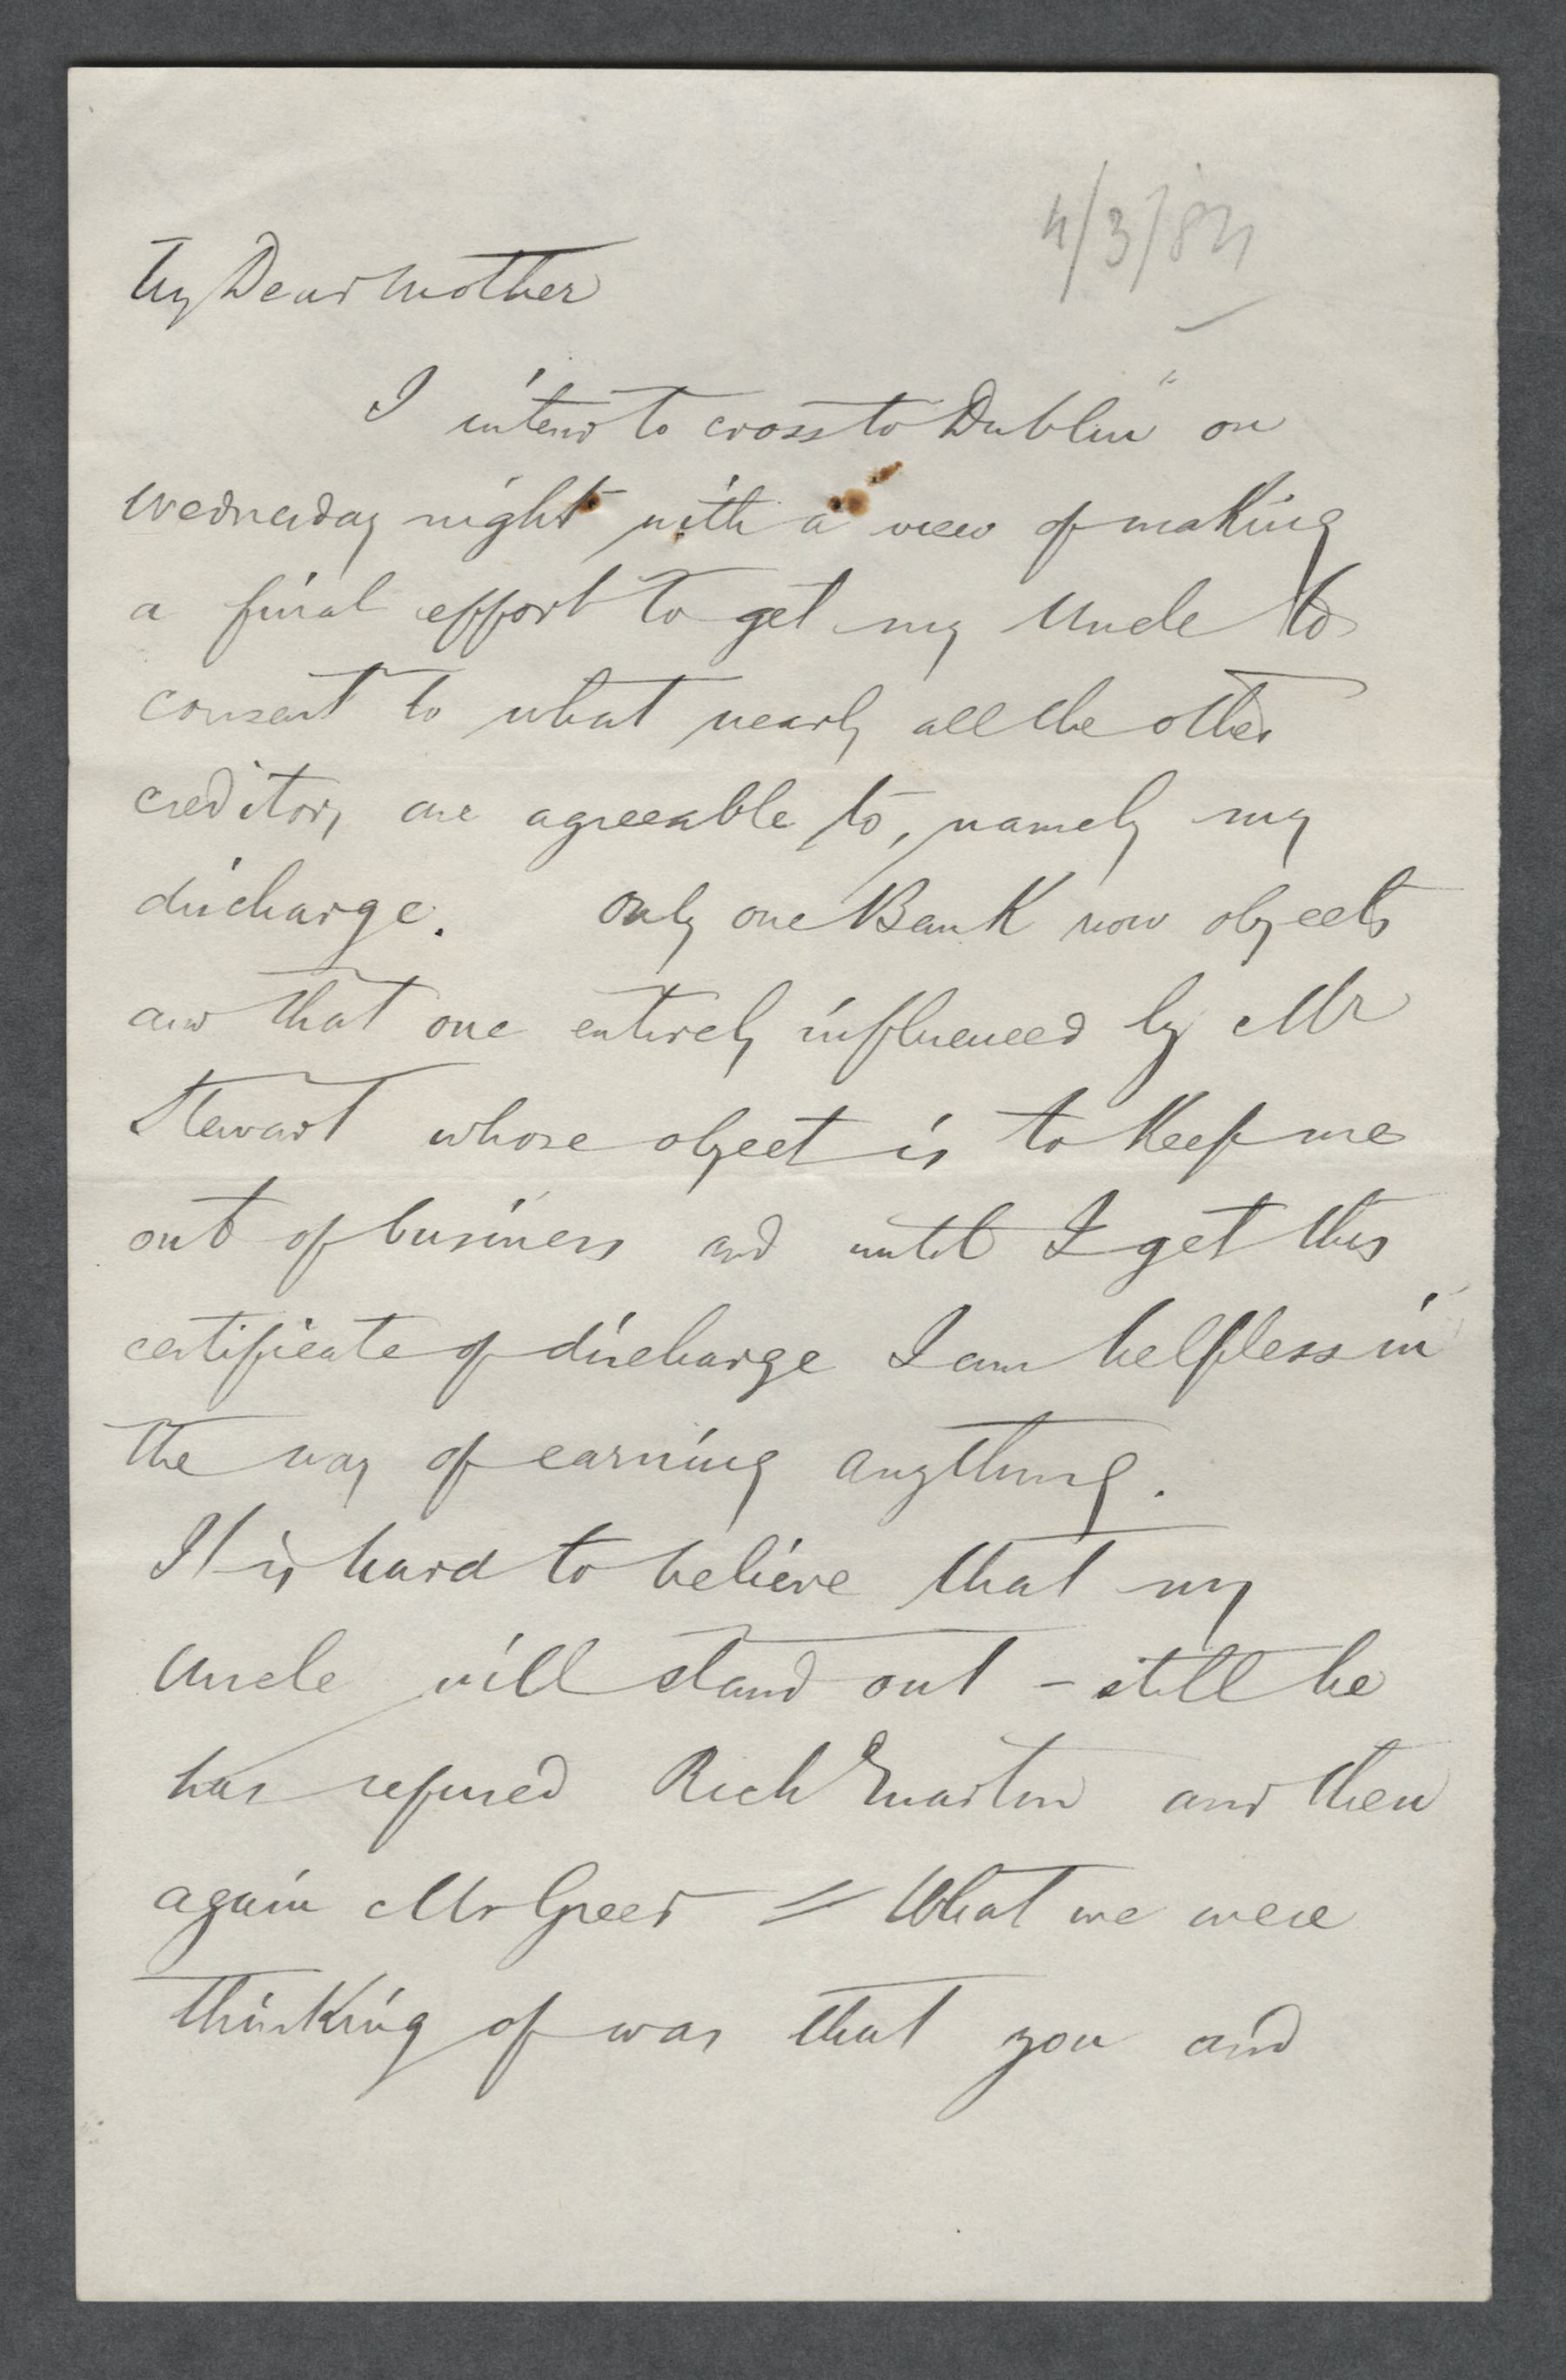 4/3/84
My Dear Mother
I intend to cross to Dublin on
Wednesday night with a view of making
a final effort to get my Uncle to
consent to what nearly all the other
creditors are agreeable to, namely my
discharge. Only one Bank now objects
and that one entirely influenced by Mr
Stewart whose object is to keep me
out of business and until I get this
certificate of discharge I am helpless in
the way of earning anything.
It is hard to believe that my
Uncle will stand out - still he
has refused Rich Martin and then
again Mr Greer = What we were
thinking of was that you and